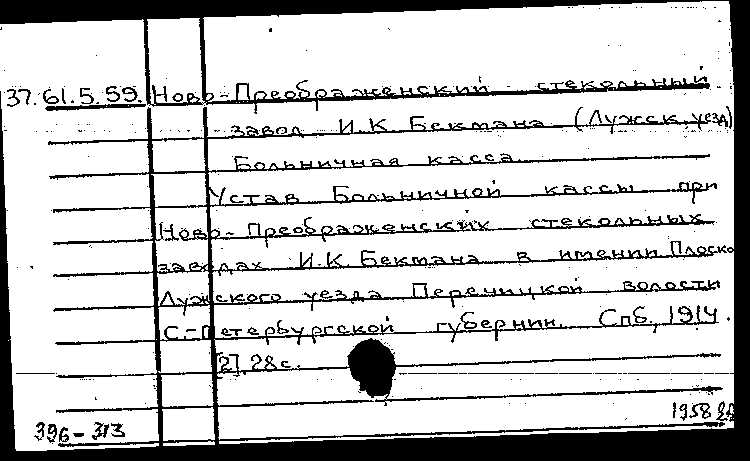 37.61.5.59. Ново-Преображенский стекольный
завод И.К Бекмана (Лужск. уезд)
Больничная касса.
Устав Больничной кассы при
Ново-Преображенских стекольных
заводах И.К Бекмана в имении Плоско
Лужского уезда Переницкой волости
С.-Петербургской губернии. Спб, 1914.
[2], 28с.
1958
396-313